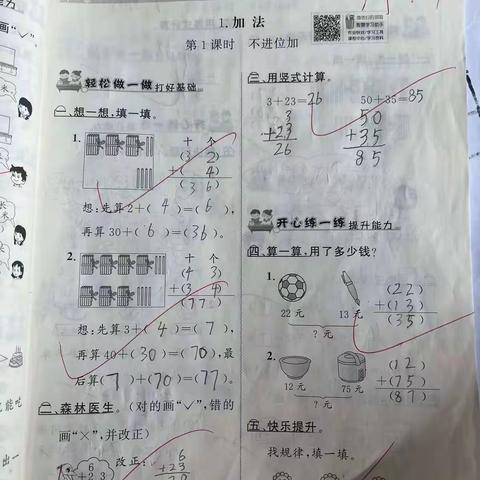 1.加法
第1课时 不进位加
微信扫码领取
智慧学习助手
轻松做一做 打好基础
一、想一想,填一填。
1.
十 个
(3 2)
+( 4)
(3 6)
想:先算2+( 4 )=( 6 ),
再算30+( 6 )=( 36 )。
2.
十 个
(4 3)
+(3 4)
(7 7)
想:先算3+( 4 )=( 7 ),
再算40+( 30 )=( 70 ),最
后算( 7 )+( 70 )=( 77 )。
二、森林医生。(对的画“✓”,错的
画“×”,并改正)
6
+2 3
改正:
6
+23
三、用竖式计算。
3+23=26 50+35=85
3
+23
26
50
+35
85
开心练一练 提升能力
四、算一算,用了多少钱?
1.
22元 13元
?元
(22)
+(13)
(35)
2.
12元 75元
?元
(12)
+(75)
(87)
五、快乐提升。
找规律,填一填。
画“✓”